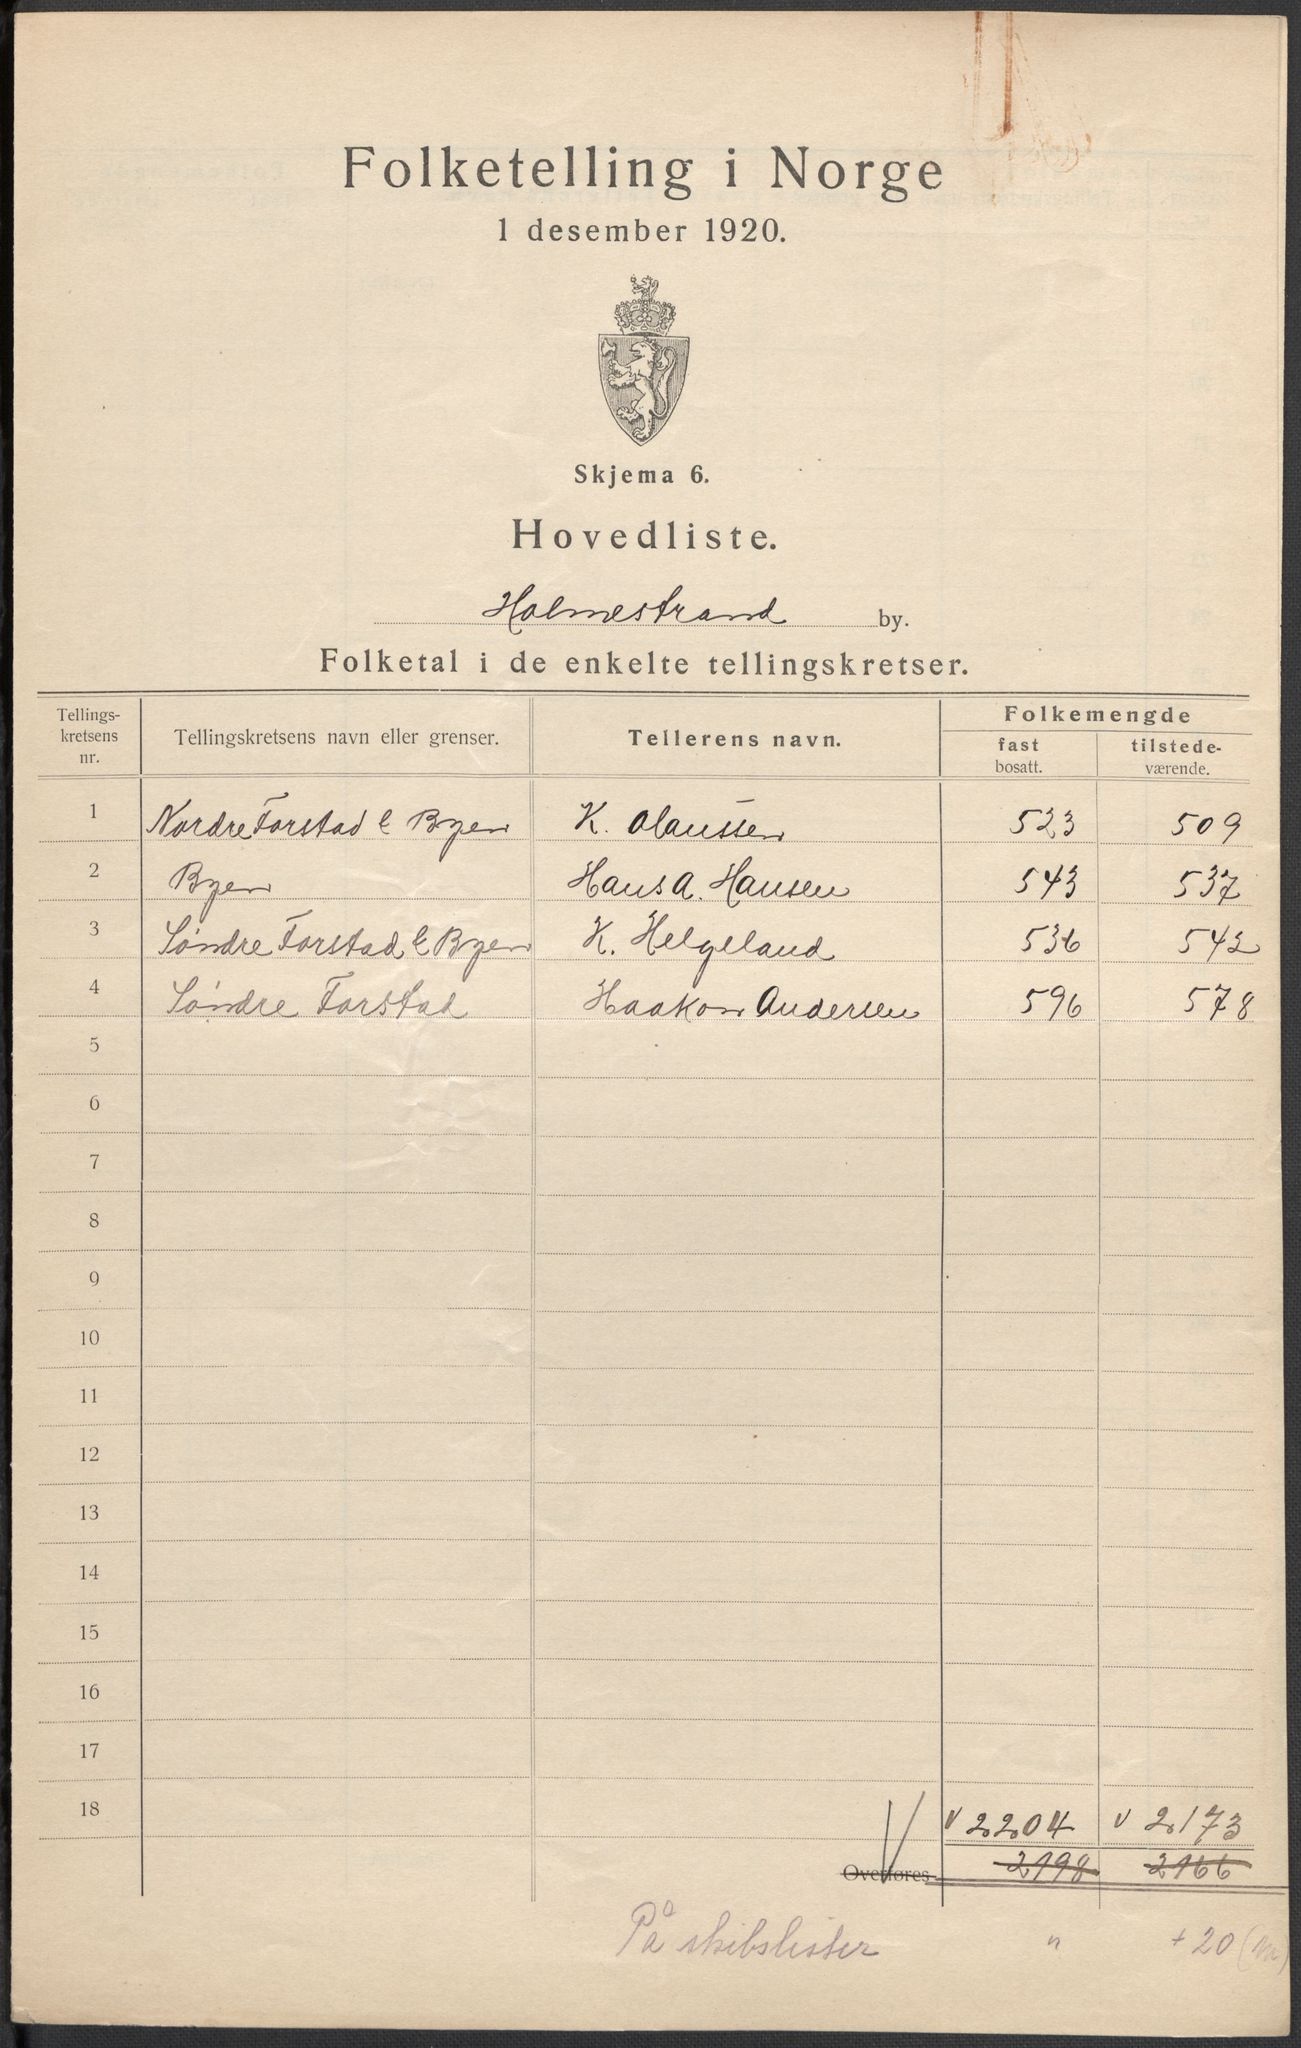 Folketelling i Norge
1 desember 1920.
Skjema 6.
Hovedliste.
Holmestrand by.
Folketal i de enkelte tellingskretser.
Tellings-
kretsens
nr.
Tellingskretsens navn eller grenser.
Tellerens navn.
Folkemengde
fast
bosatt.
tilstede-
værende.
1 Nordre Forstad & Byen K. Olaussen 523 509
2 Byen Hans A. Hansen 543 537
3 Søndre Forstad & Byen K. Helgeland 536 542
4 Søndre Forstad Haakon Andersen 596 578
5
6
7
8
9
10
11
12
13
14
15
16
17
18 V 2204 V 2173
Overføres 2198 2166
På skibslister " + 20